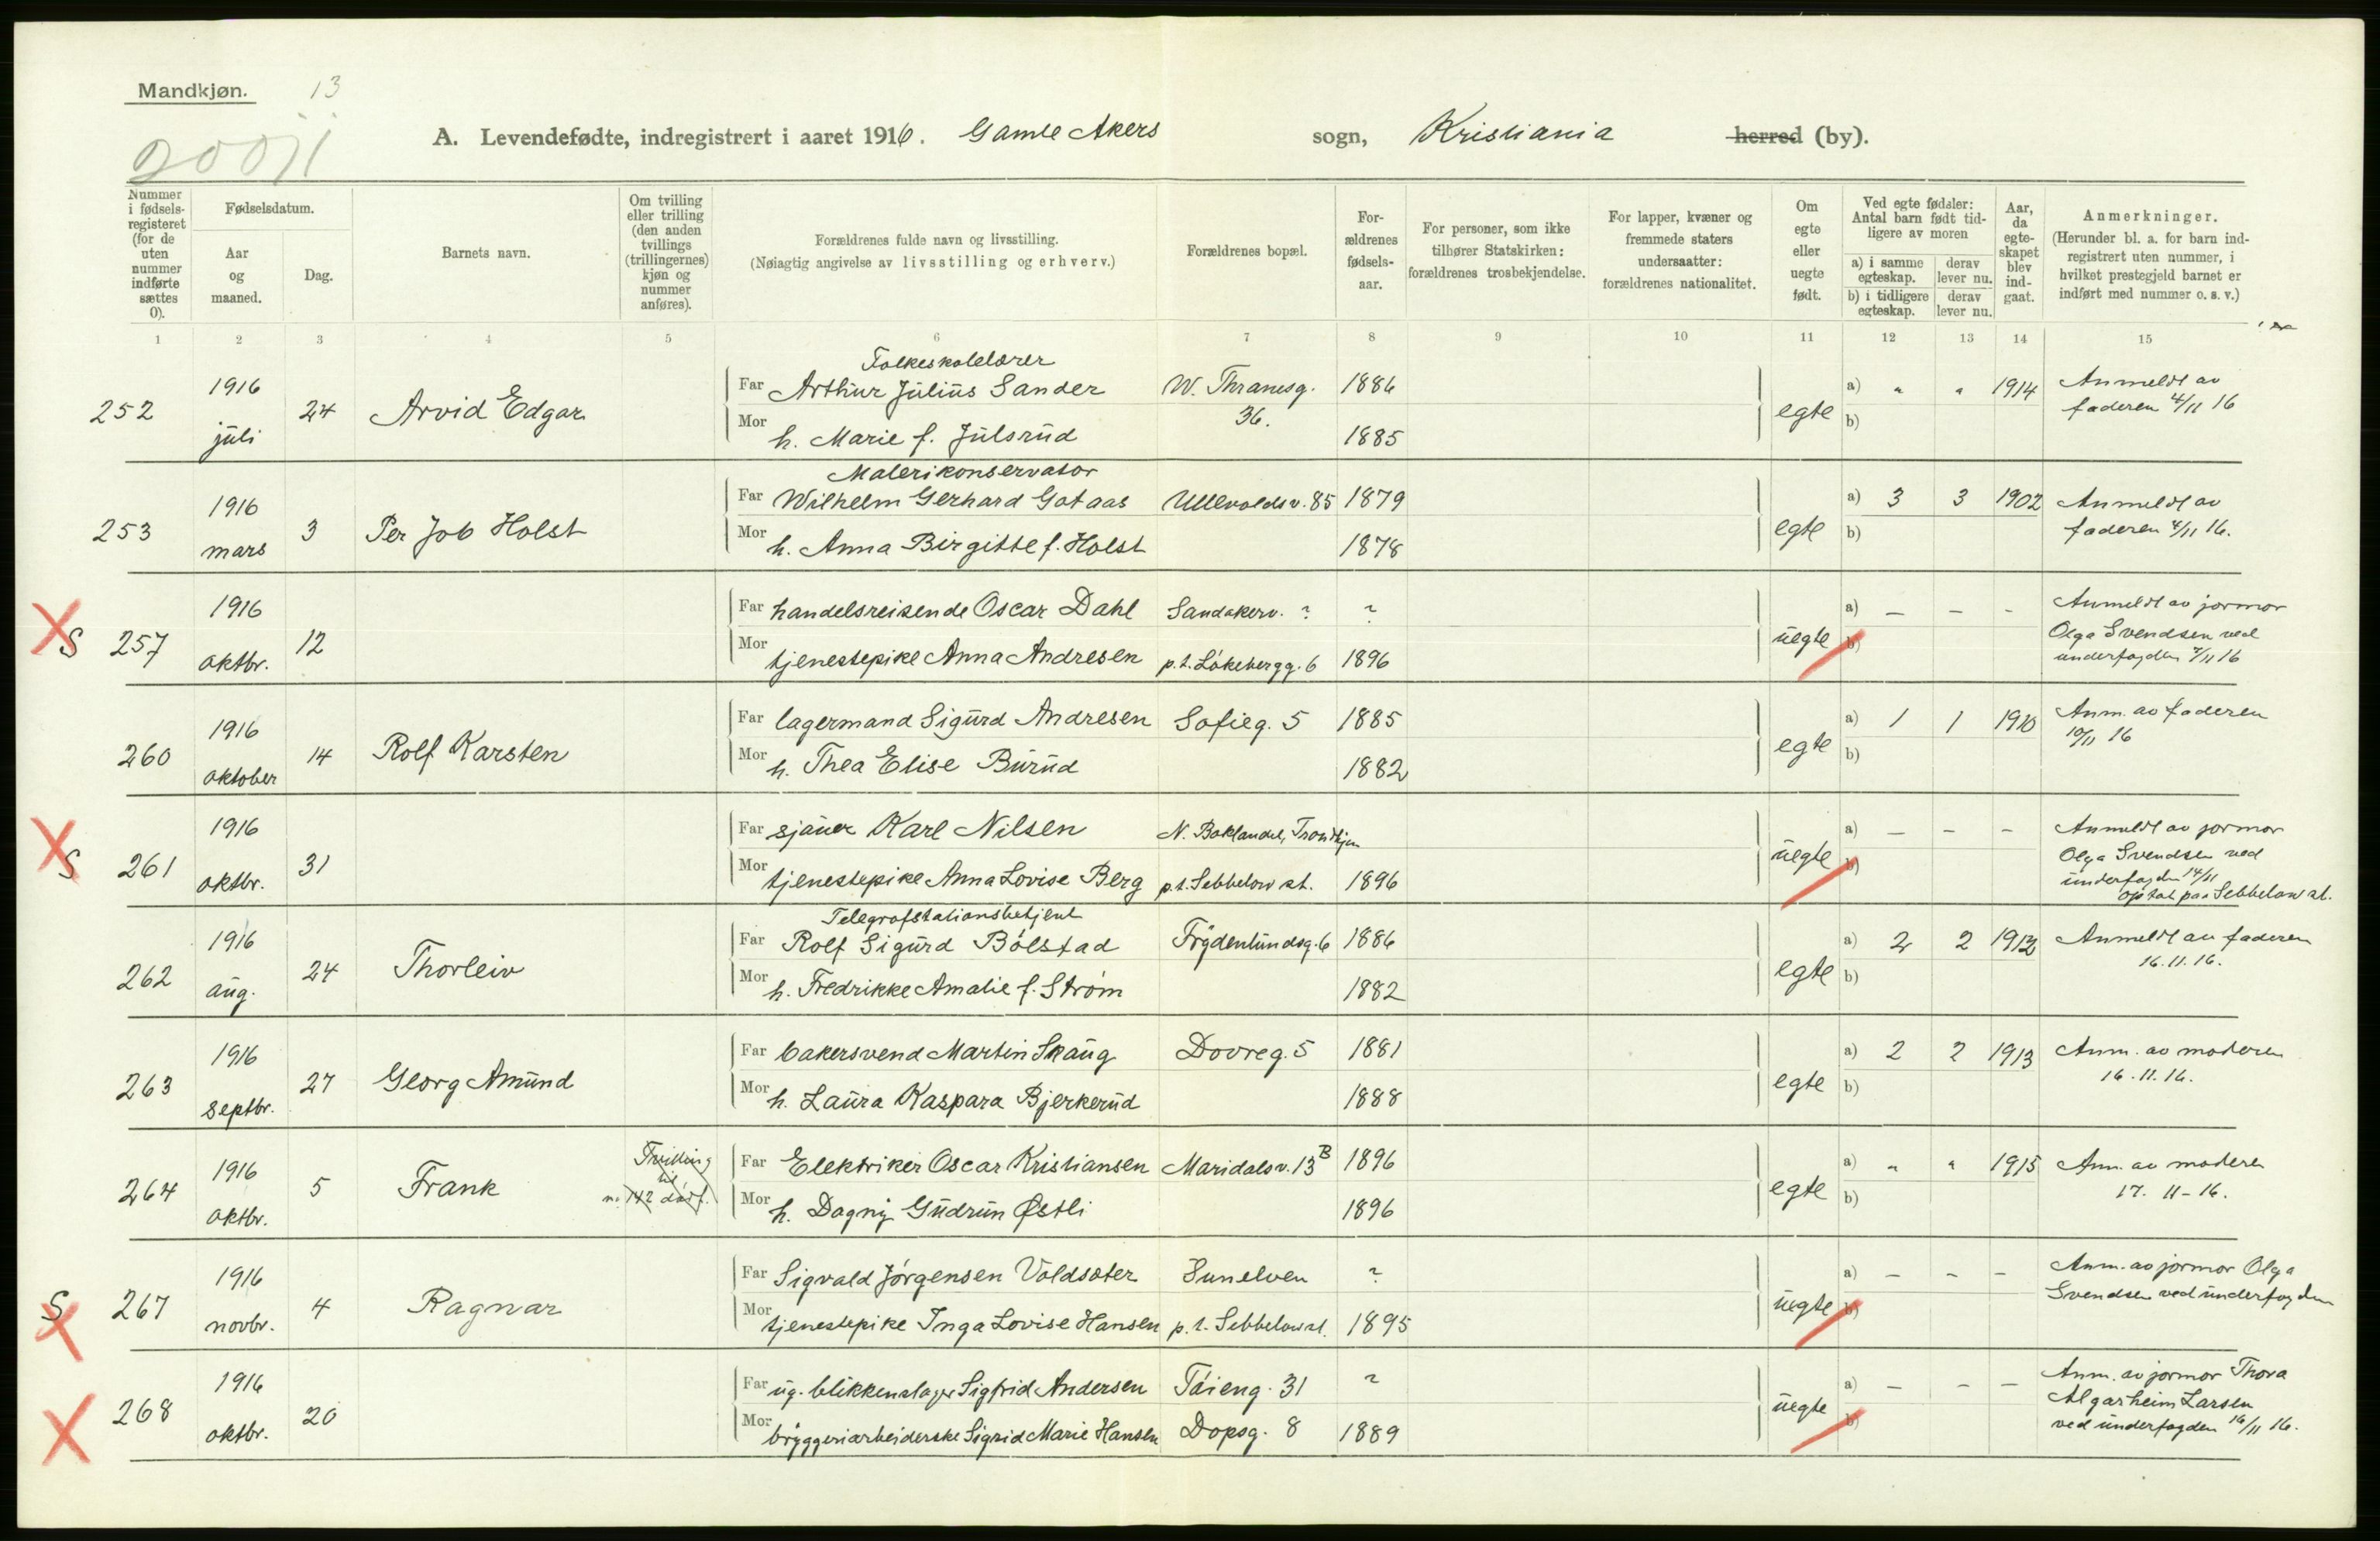 Mandkjøn. 13
20071
A. Levendefødte, indregistrert i aaret 1916. Gamle Akers sogn, Kristiania herred (by).
Nummer i fødsels-registeret (for de uten nummer indførte sættes 0).
Fødselsdatum.
Aar og maaned.
Dag.
Barnets navn.
Om tvilling eller trilling (den anden tvillings (trillingernes) kjøn og nummer anføres).
Forældrenes fulde navn og livsstilling.
(Nøiagtig angivelse av livsstilling og erhverv.)
Forældrenes bopæl.
For-ældrenes fødsels-aar.
For personer, som ikke tilhører Statskirken: forældrenes trosbekjendelse.
For lapper, kvæner og fremmede staters undersaatter: forældrenes nationalitet.
Om egte eller uegte født.
Ved egte fødsler: Antal barn født tid-ligere av moren
a) i samme egteskap. derav lever nu.
b) i tidligere egteskap. derav lever nu.
Aar, da egte-skapet blev ind-gaat.
Anmerkninger.
(Herunder bl. a. for barn ind-registrert uten nummer, i hvilket prestegjeld barnet er indført med nummer o. s. v.)
1 2 3 4 5 6 7 8 9 10 11 12 13 14 15
252 1916 juli 24 Arvid Edgar
Folkeskolelærer
Far Arthur Julius Sander W. Thranesg. 36. 1886
Mor h. Marie f. Julsrud 1885
egte a) " " 1914 b)
Anmeldt av
faderen 4/11 16
253 1916 mars 3 Per Job Holst
Malerikonservator
Far Wilhelm Gerhard Gotaas Ullevoldsv. 85 1879
Mor h. Anna Birgitte f. Holst 1878
egte a) 3 3 1902 b)
Anmeldt av
faderen 4/11 16.
S 257 1916 oktbr. 12
Far handelsreisende Oscar Dahl Sandakerv. ? ?
Mor tjenestepike Anna Andresen p.t. Løkebergg. 6 1896
uegte a) — — - b)
Anmeldt av jormor
Olga Svendsen ved
underfogden 7/11 16
260 1916 oktober 14 Rolf Karsten
Far lagermand Sigurd Andresen Sofieg. 5 1885
Mor h. Thea Elise Burud 1882
egte a) 1 1 1910 b)
Anm. av faderen
10/11 16
S 261 1916 oktbr. 31
Far sjauer Karl Nilsen N. Baklandet, Trondhjem
Mor tjenestepike Anna Lovise Berg p.t. Sebbelow st. 1896
uegte a) — — — b)
Anmeldt av jormor
Olga Svendsen ved
underfogden 14/11
optat paa Sebbelow st.
262 1916 aug. 24 Thorleiv
Telegrafstationsbetjent
Far Rolf Sigurd Bølstad Frydenlundsg. 6 1886
Mor h. Fredrikke Amalie f. Strøm 1882
egte a) 2 2 1912 b)
Anmeldt av faderen
16.11.16.
263 1916 septbr. 27 Georg Amund
Far bakersvend Martin Skaug Dovreg. 5 1881
Mor h. Laura Kaspara Bjerkerud 1888
egte a) 2 2 1913 b)
Anm. av moderen
16.11.16.
264 1916 oktbr. 5 Frank
Tvilling til n. 142 dødf.
Far Elektriker Oscar Kristiansen Maridalsv. 13 B 1896
Mor h. Dagny Gudrun Østli 1896
egte a) " " 1915 b)
Anm. av moderen
17. 11-16.
S 267 1916 novbr. 4 Ragnar
Far Sigvald Jørgensen Voldsæter Sunelven ?
Mor tjenestepike Inga Lovise Hansen p.t. Sebbelow st. 1895
uegte a) — - — b)
Anm. av jormor Olga
Svendsen ved underfogden
268 1916 oktbr. 20
Far ug. blikkenslager Sigfrid Andersen Tøieng. 31 ?
Mor bryggeriarbeiderske Sigrid Marie Hansen Dopsg. 8 1889
uegte a) — - — b)
Anm. av jormor Thora
Algarheim Larsen
ved underfogden 16/11 16.